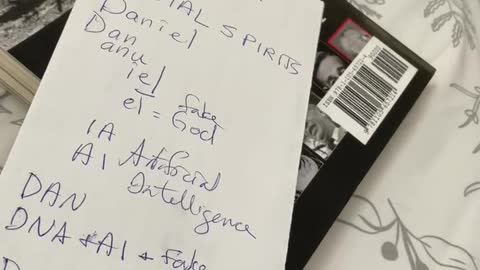 SPIRITS
Daniel
Dan
anu
iel
fake
el = God
IA
AI Artificial
Intelligence
DAN
DNA + AI + fake